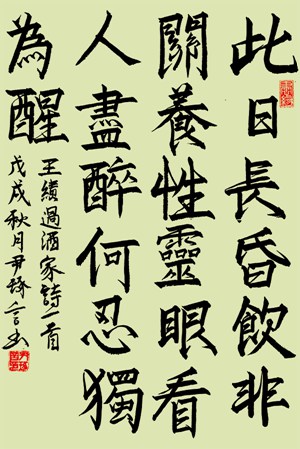 此日長昏飲非
關養性靈眼看
人盡醉何忍獨
為醒
王績過酒家詩一首
戊戌秋月尹